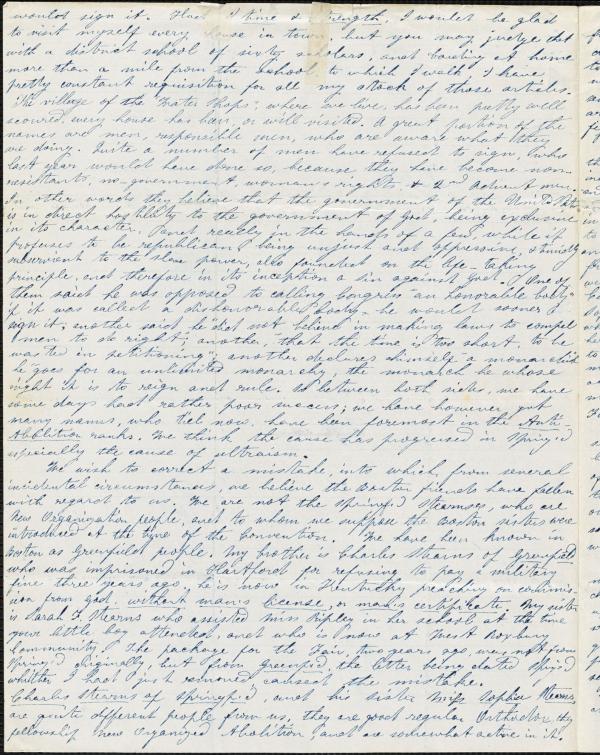 would sign it. Had I time & strength, I would be glad
to visit myself every house in town but you may judge that
with a district school of sixty scholars, and boarding at home
more than a mile from the school, to which I walk, I have
pretty constant requisition for all my stock of those articles.
The village of the Water Shops, where we live, has been pretty well
scoured, every house has been, or will visited. A great portion of the
names are men, responsible men, who are aware what they
are doing. Quite a number of men have refused to sign, who
last year would have done so, because they have become non-
resistants, no-government woman-rights, & 2nd Advent men.
In other words they believe that the government of the United Stats
is in direct hostility to the government of God, being exclusive
in its character, and really in the hands of a few, while it
professes to be republican, being unjust and oppressive,
subservient to the slave power, also founded on the life-taking
principle, and therefore in its inception a sin against God. One of
them said he was opposed to calling Congress an honorable body-
if it was called a dishonorable body- he would sooner
sign it; another said he did not believe in making laws to compel
men to do right; another, that the time is too short, to be
wasted in petitioning; another declares himself a monarchist
he goes for an unlimited monarchy, the monarch he whose
right it is to reign and rule. So between both sides, we have
some days had rather poor success; we have however got
many names, who till now, have been foremost in the Anti-
Abolition ranks. We think the cause has progressed in Spring'd
especially the cause of ultraism.
We wish to correct a mistake, into which, from several
incidental circumstances, we believe the Boston friends have fallen
with regard to us. We are not the Springfi'd Stearnses, who are
New Organization people, and to whom we suppose the Boston sisters were
introduced at the time of the Convention. We have been known in
Boston as Greenfield people. My brother is Charles Stearns of Greenfield
who was imprisoned in Hartford for refusing to pay a military
fine three years ago, he is now in Kentucky preaching on commis-
sion from God, without man's license, or man's certificate. My sister
is Sarah F. Stearns who assisted Miss Ripley in her school at the time
your little boy attended, and who is now at West Roxbury
Community. The package for the Fair, two years ago, was not from
Spring'd originally, but from Greenfi'd, the letter being dated Spri'g'd
whither I had just removed caused the mistake.
Charles Stearns of Springfi'd, and his sister Miss Sophia Stearns
are quite different people from us, they are good regular Orthodox, they
fellowship New Organized Abolition, and are somewhat active in it,